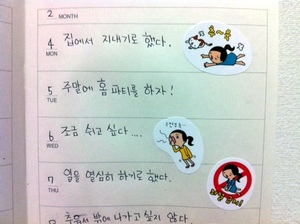 2 MONTH
4 집에서 지내기로 했다.
MON
5 주말에 홈 파티를 하자!
TUE
6 조금 쉬고 싶다....
WED
7 열심히 하기로 했다.
THU
8 밖에 나가고 싶지 않다.